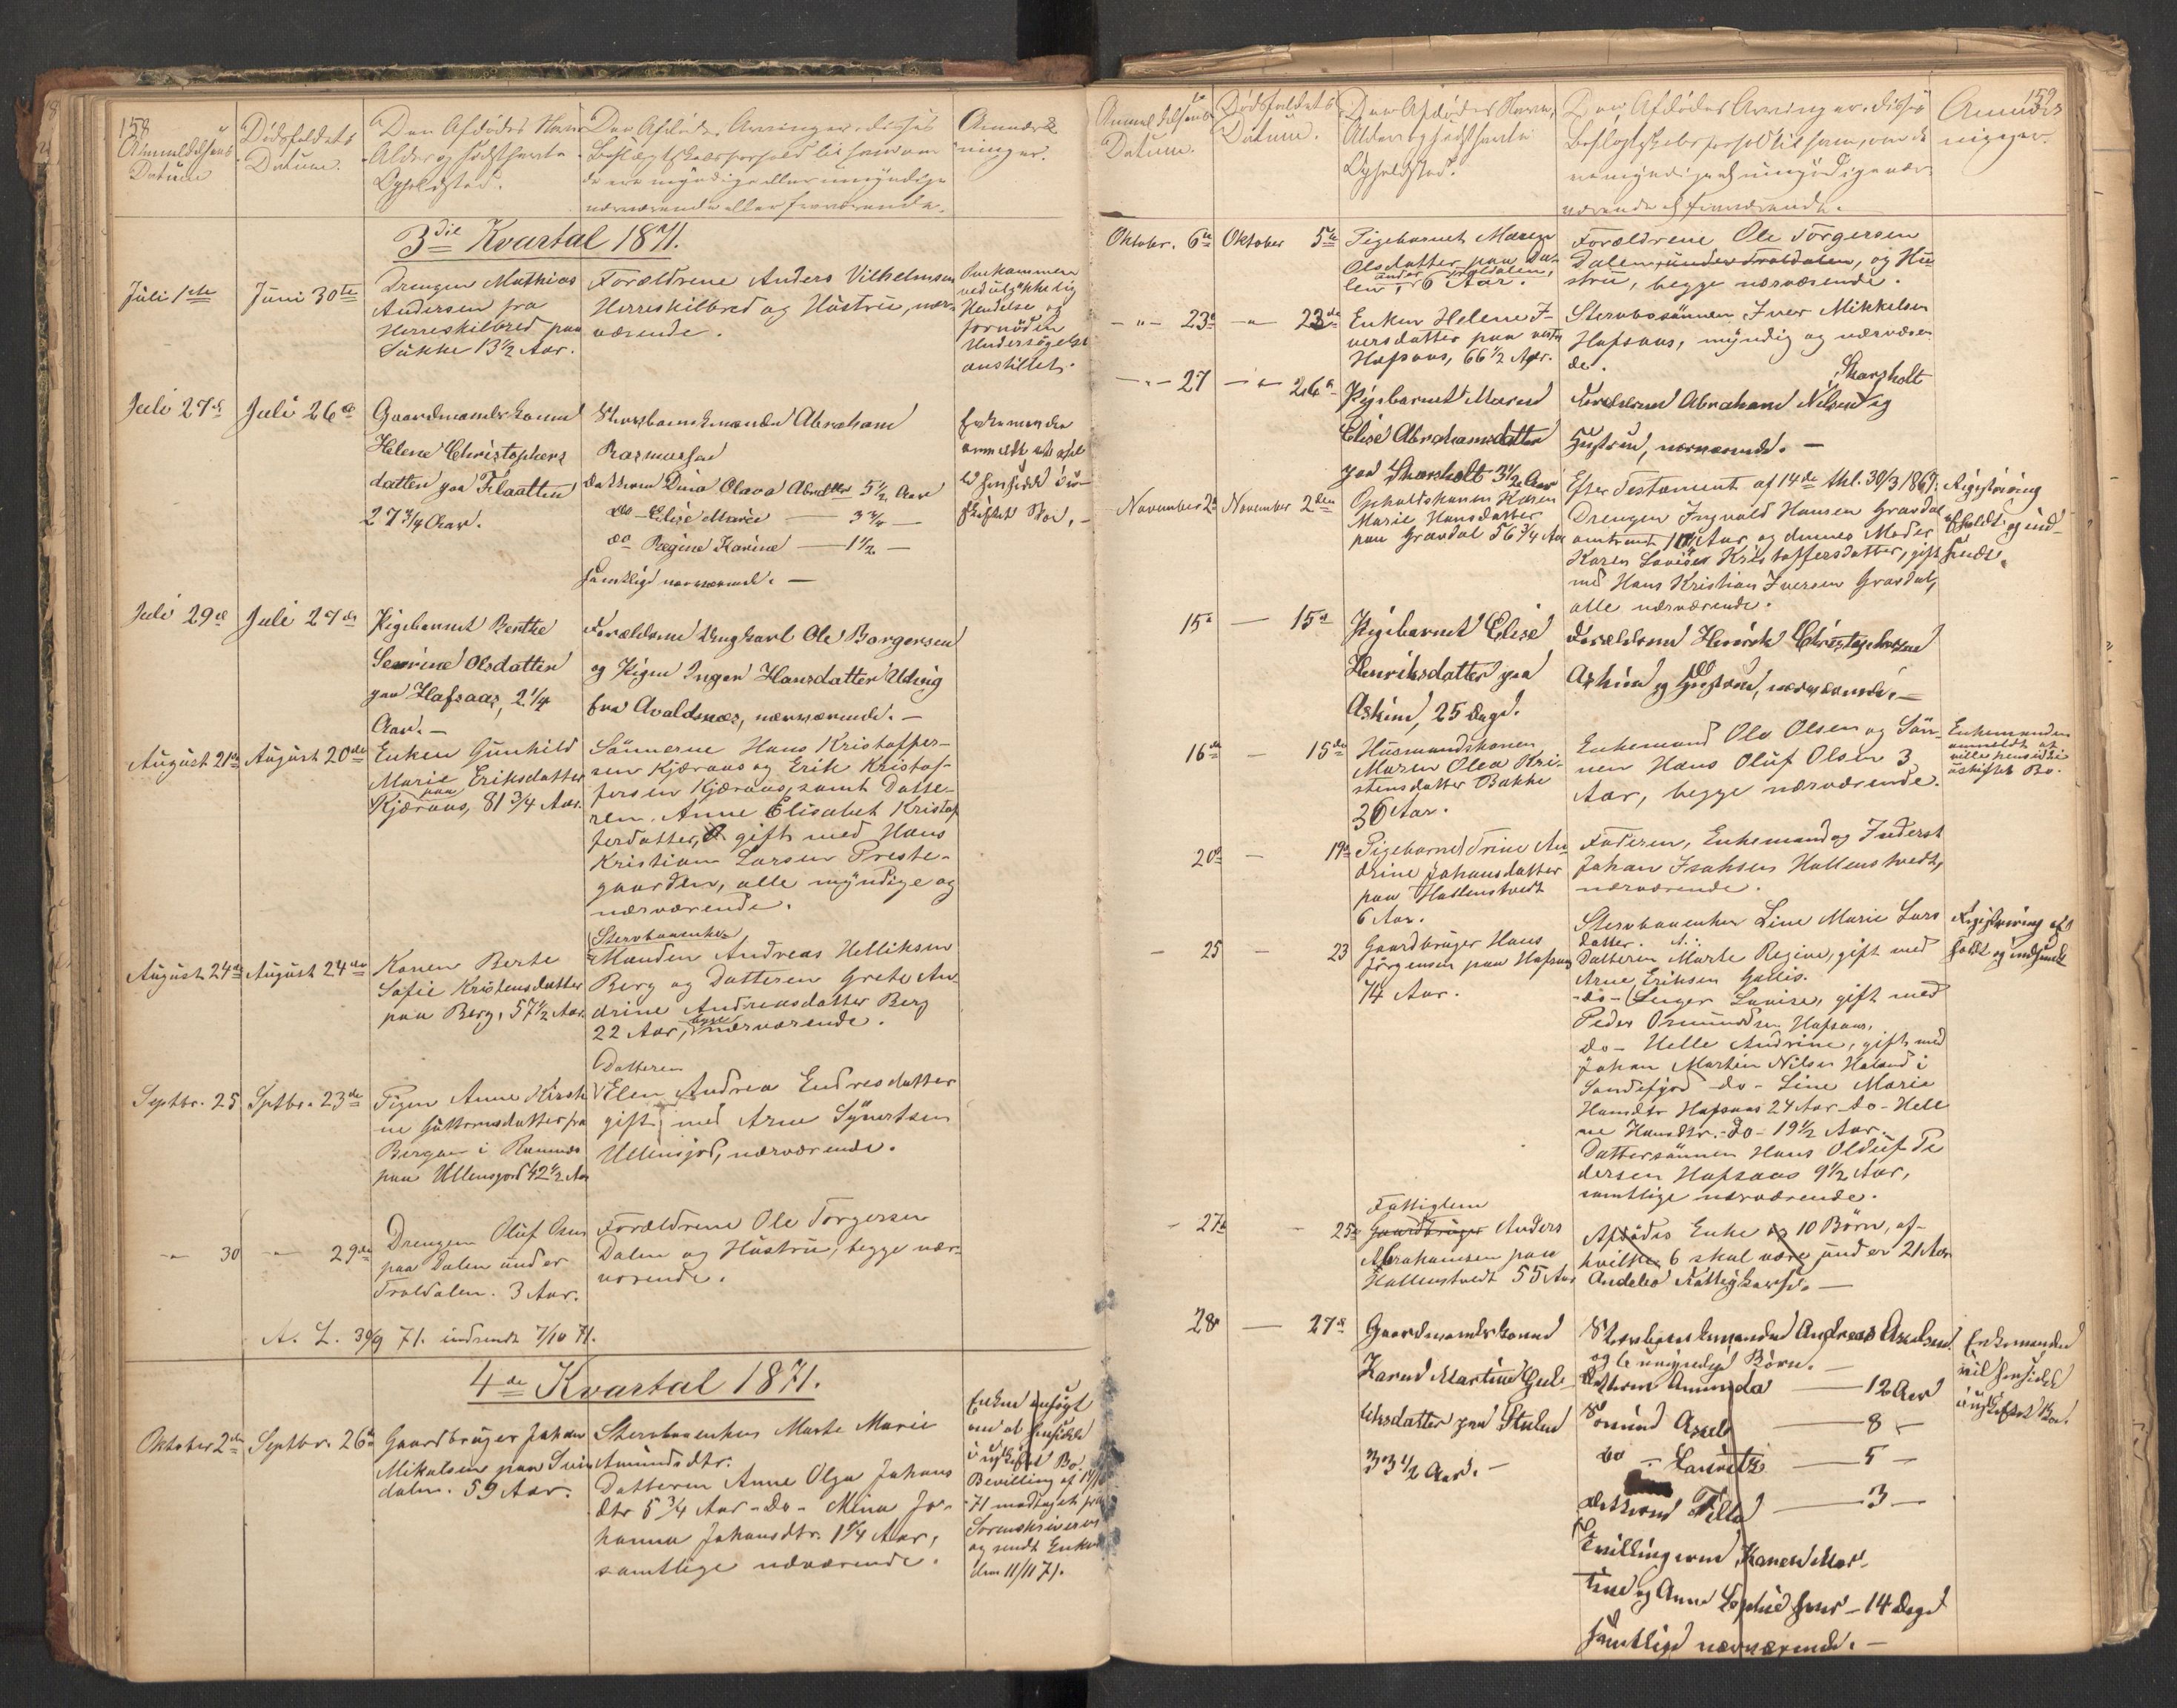 158
Anmeldelsens
Datum
Dødsfaldets
Datum.
Den Afdødes Navn
Alder og sidst havte
Opholdsted.
Den Afdødes Arvinger, disses
Beslægtskabsforhold til ham om
de ere myndige eller umyndige
nærværende eller fraværende.
Anmærk
ninger.
3die Kvartal 1871.
Juli 1ste
Juni 30te
Drengen Mathias
Andersen fra
Herreskilbred paa
Sukke 13½ Aar.
Forældrene Anders Vilhelmsen
Herreskilbred og Hustru, nær-
værende.
Omkommen
ved ulykkelig
Hendelse og
fornöden
Undersögelse
anstillet.
Juli 27de
Juli 26de
Gaardmandskonen
Helene Christophers
datter paa Flaatten
27¾ Aar.
Abraham
Rasmussen
Datteren Dina Olava Abrdtter 5½ Aar
do - Elise Marie — 3¾ —
do Regine Karine — 1½ —
samtlige nærværende. —
Enkemanden
anmeldt at
skiftet Bo. -
Juli 29de
Juli 27de
Pigebarnet Berthe
Severine Olsdatter
paa Hafsaas, 2¼
Aar. —
Forældrene Ungkarl Ole Borgersen
og Pigen Inger Hansdatter Utding
fra Avaldsnæs, nærværende. —
August 21de
August 20de
Enken Gunhild
Marie Eriksdatter
paa
Kjæraas, 81¾ Aar.
Sönnerne Hans Kristoffer-
sen Kjæraas og Erik Kristof-
fersen Kjæraas, samt Datte-
ren Anne Elisabet Kristof
ferdatter, gift med Hans
Kristian Larsen Preste-
gaarden, alle myndige og
nærværende.
August 24de
August 24de
Konen Berte
Sofie Kristensdatter
paa Berg, 57½ Aar.
Stervboenke
Manden Andreas Helliksen
Berg og Datteren Grete An-
drine Andreasdatter Berg
22 Aar, begge nærværende.
Septbr. 25
Sptbr. 23de
Pigen Anne Kirsti
ne Guttormsdatter fra
Bergan i Ramnæs
paa Ullensjord 42½ Aar
Datteren
Elen Andrea Endresdatter
gift med Arne Synertsen
Ullensjord, nærværende.
-"- 30
-"- 29de
Drengen Oluf Olsen
paa Dalen under
Traldalen. 3 Aar.
Forældrene Ole Torgersen
Dalen og Hustru, begge nær-
værende.
A. L. 30/9 71. indsendt 7/10 71.
4de Kvartal 1871.
Oktober 2den
Septbr. 26de
Gaardbruger Johan
Mikalsen paa Svin
dalen. 59 Aar.
Stervboenken Marte Marie
Amundsdtr.
Datteren Anne Olga Johans
dtr 5¾ Aar - Do - Mina Jo-
hanna Johansdtr. 1¼ Aar,
samtlige nærværende.
Enken ansögt
om at hensidde
i uskiftet Bo.
Bevilling af
71 modtaget fra
Sorenskriveren
og sendt Enken
den 11/11 71.
159
Anmeldelsens
Datum.
Dødsfaldets
Datum.
Den Afdødes Navn,
Alder og sidst havte
Opholdsted.
Den Afdødes Arvinger, disses
Beslægtskabsforhold til ham, om de
ere myndige el umyndige nær-
værende el fraværende.
Anmærk
ninger.
Oktobr. 6te
Oktober 5te
Pigebarnet Maren
Olsdatter paa Da-
under Traldalen,
len, 6 Aar.
Forældrene Ole Torgersen
Dalen, under Traldalen, og Hu
stru, begge nærværende.
-"- 23de
-"- 23de
Enken Helene I-
versdatter paa vestre
Hafsaas, 66½ Aar.
Stervbosönnen Iver Mikkelsen
Hafsaas, myndig og nærværen
de.
-"- 27
-"- 26de
Pigebarnet Maren
Elise Abrahamsdatter
paa Skarsholt 3½ Aar
Skarsholt
Forældrene Abraham Nilsen og
Hustrue, nærværende. —
November 2de
November 2den
Opholdskonen Helene
Marie Hansdatter
paa Gravdal 56¾ Aar
Efter Testament af 14de thl. 30/3 1867:
Drengen Ingvald Hansen Gravdal
omtrent 10 Aar og dennes Moder
Karen Lovise Kristoffersdatter, gift
med Hans Kristian Iversen Gravdal,
alle nærværende.
Registrering
afholdt og ind-
sendt.
15de
— 15de
Pigebarnet Elise
Henriksdatter paa
Askim, 25 Dage.
Forældrene Henrik Christophersen
Askim og Hustrue, nærværende. —
16de
- 15de
Husmandskonen
Maren Olea Kri-
stensdatter Bakke
36 Aar.
Enkemand Ole Olsen og Sön-
nen Hans Oluf Olsen 3
Aar, begge nærværende.
Enkemanden
anmeldt at
ville hensidde i
uskiftet Bo.
20de
— 19de
Pigebarnet Trine An
drine Johansdatter
paa Hallenstvedt
6 Aar.
Faderen, Enkemand og Inderst
Johan Isaksen Hallenstvedt,
nærværende.
- 25
- 23
Gaardbruger Hans
Jörgensen paa Hafsaas
74 Aar.
Stervboenken Line Marie Lars
datter.
Datteren Marte Regine, gift med
Arne Eriksen Gallis.
-do- Inger Lovise, gift med
Peder Osmundsen Hafsaas,
do - Helle Andrine, gift med
Johan Martin Nilsen Haland i
Sandefjord - do - Line Marie
Hansdtr Hafsaas 24 Aar - do - Hele
ne Hansdtr. - do - 19½ Aar.
Dattersönnen Hans Olduf Pe
dersen Hafsaas 9½ Aar,
samtlige nærværende.
Registrering af
holdt og indsendt
- 27de
- 25de
Fattiglem
Gaardbruger Anders
Abrahamsen paa
Hallenstvedt 55 Aar
Afdödes Enke og 10 Börn, af-
hvilke 6 skal være under 21 Aar
Andebo Fattigkasse. —
28de
— 27de
Gaardmandskonen
Karen Martine Gul-
liksdatter paa Stulen
33½ Aar. —
Andreas Axelsen
og 6 umyndige Börn. —
Datteren Amunda — 12 Aar
Sönnen Axel — 8 -
do - Lauritz — 5 —
Datteren Tilla — 3 —
Tvillingerne Karen Mar-
tine og Anne Sophie — 14 Dage
samtlige nærværende. —
Enkemanden
vil hensidde
i uskiftet Bo.